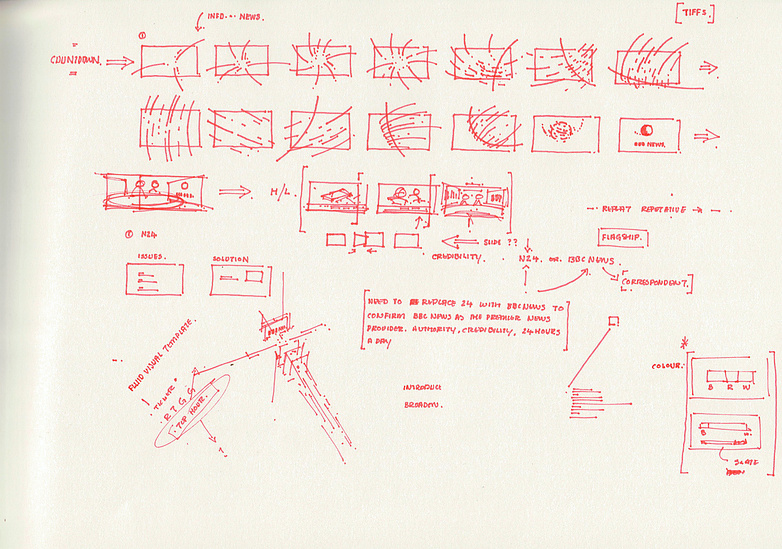 INFO... NEWS.
[TIFFS.]
①
COUNTDOWN.
BBC NEWS.
H/L.
REPEAT REPUTATIVE
② N24
SLIDE ??
FLAGSHIP.
ISSUES.
SOLUTION
CREDIBILITY.
N24. OR BBC NEWS.
CORRESPONDENT.]
NEED TO REPLACE 24 WITH BBC NEWS TO
CONFIRM BBC NEWS AS THE PREMIER NEWS
PROVIDER. AUTHORITY, CREDIBILITY, 24 HOURS
A DAY
FLUID VISUAL TEMPLATE.
COLOUR.
B R W
"TICKER"
R T G G
TOP HOUR.
INTRODUC
BROADEN.
B
SLATE